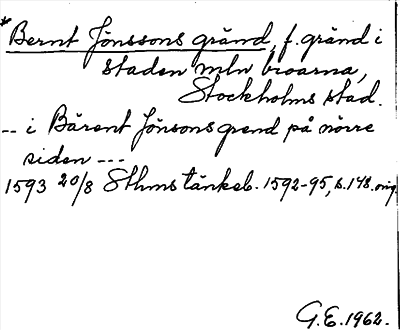 *Bernt Jönssons gränd, f. gränd i
staden mln broarna,
Stockholms stad.
-- i Bärent Jönsons grend på nörre
siden ---
1593 20/8 Sthms tänkeb. 1592-95, s. 148. orig.
G.E. 1962.